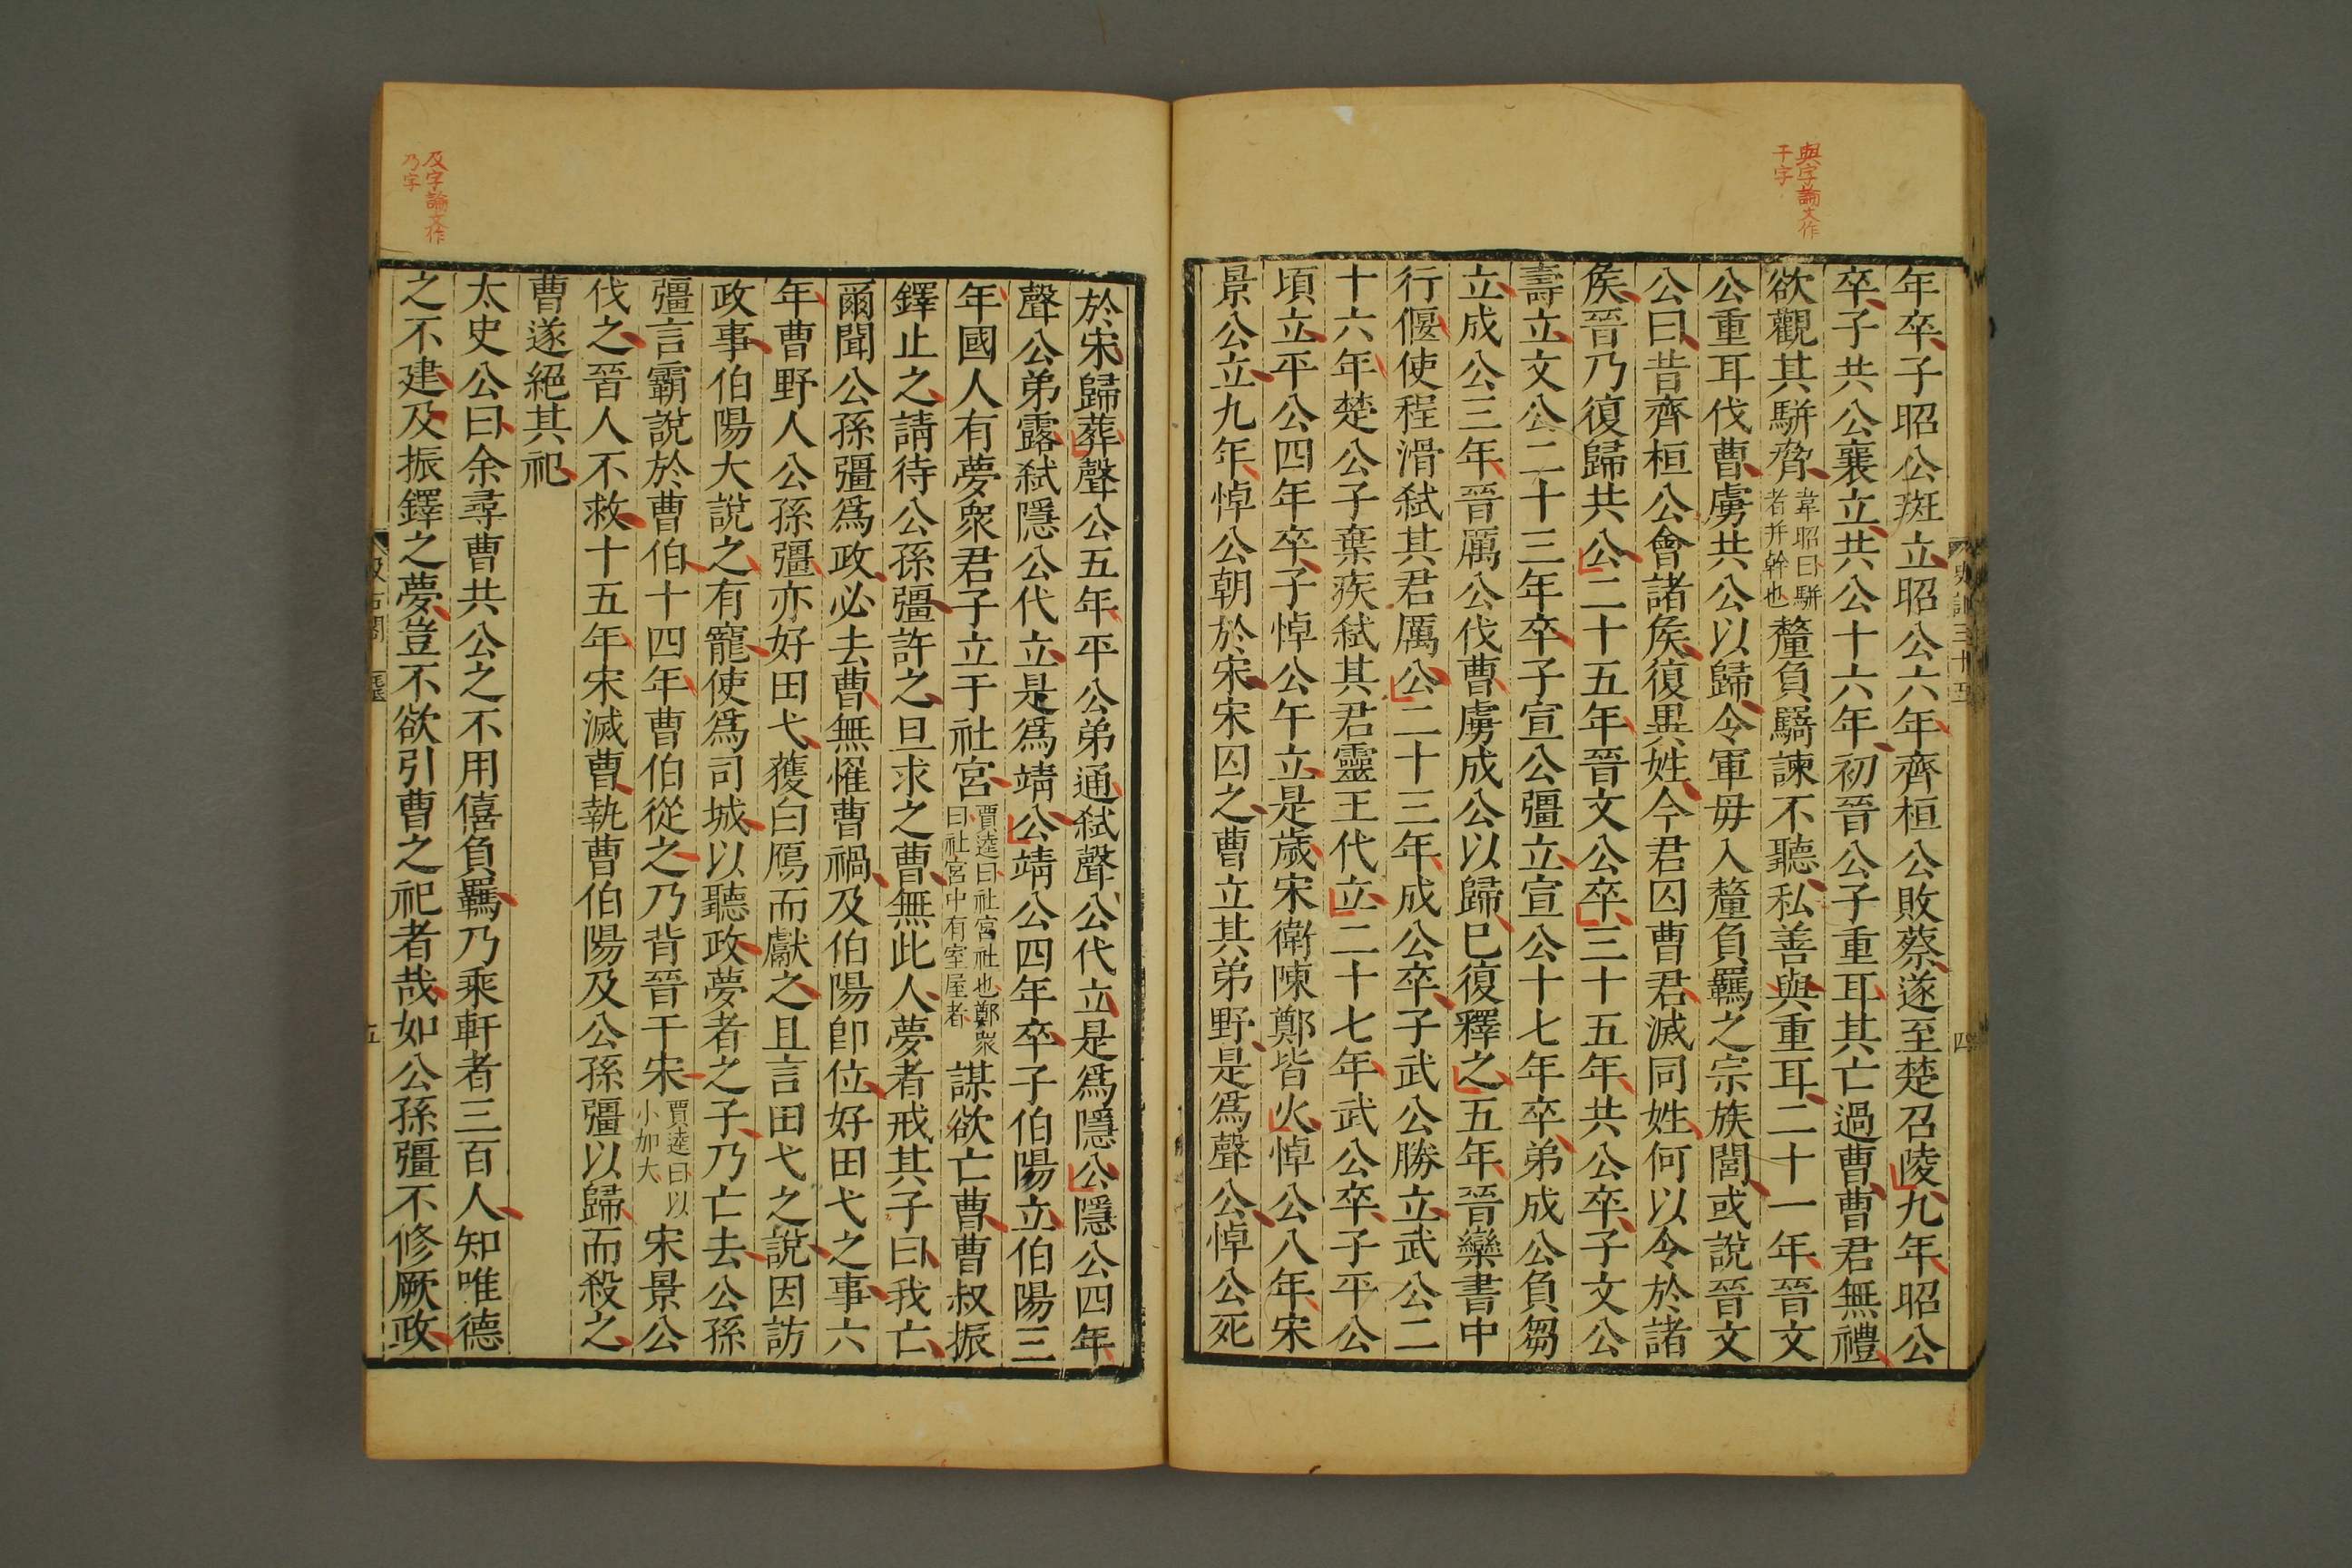 與字論文作
于字
年卒子昭公班立昭公六年齊桓公敗蔡遂至楚召陵九年昭公
卒子共公襄立共公十六年初晉公子重耳其亡過曹曹君無禮
欲觀其駢脅韋昭曰駢者并幹也釐負羈諫不聽私善與重耳二十一年晉文
公重耳伐曹虜共公以歸令軍毋入釐負羈之宗族閭或說晉文
公曰昔齊桓公會諸侯復異姓今君囚曹君滅同姓何以令於諸
侯晉乃復歸共公二十五年晉文公卒三十五年共公卒子文公
壽立文公二十三年卒子宣公彊立宣公十七年卒弟成公負芻
立成公三年晉厲公伐曹虜成公以歸已復釋之五年晉欒書中
行偃使程滑弒其君厲公二十三年成公卒子武公勝立武公二
十六年楚公子棄疾弒其君靈王代立二十七年武公卒子平公
頃立平公四年卒子悼公午立是歲宋衛陳鄭皆火悼公八年宋
景公立九年悼公朝於宋宋囚之曹立其弟野是爲聲公悼公死
於宋歸葬聲公五年平公弟通弒聲公代立是爲隱公隱公四年
聲公弟露弒隱公代立是爲靖公靖公四年卒子伯陽立伯陽三
年國人有夢衆君子立于社宮賈逵曰社宮社也鄭衆曰社宮中有室屋者謀欲亡曹曹叔振
鐸止之請待公孫彊許之旦求之曹無此人夢者戒其子曰我亡
爾聞公孫彊爲政必去曹無懼曹禍及伯陽卽位好田弋之事六
年曹野人公孫彊亦好田弋獲白鴈而獻之且言田弋之說因訪
政事伯陽大說之有寵使爲司城以聽政夢者之子乃亡去公孫
彊言霸說於曹伯十四年曹伯從之乃背晉干宋賈逵曰以小加大宋景公
伐之晉人不救十五年宋滅曹執曹伯陽及公孫彊以歸而殺之
曹遂絕其祀
太史公曰余尋曹共公之不用僖負羈乃乘軒者三百人知唯德
之不建及振鐸之夢豈不欲引曹之祀者哉如公孫彊不修厥政
及字論文作
乃字